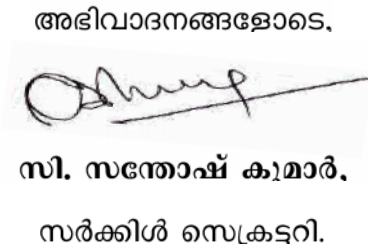 അഭിവാദനങ്ങളോടെ,
സി. സന്തോഷ് കുമാർ,
സർക്കിൾ സെക്രട്ടറി.